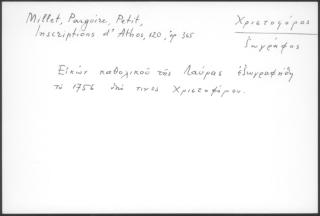 Millet, Pargoire, Petit,
Inscriptions d'Athos, 120, ἀρ. 365
Χριστοφόρος
ζωγράφος
Εἰκὼν καθολικοῦ τῆς Λαύρας ἐζωγραφήθη
τὸ 1756 ὑπό τινος Χριστοφόρου.